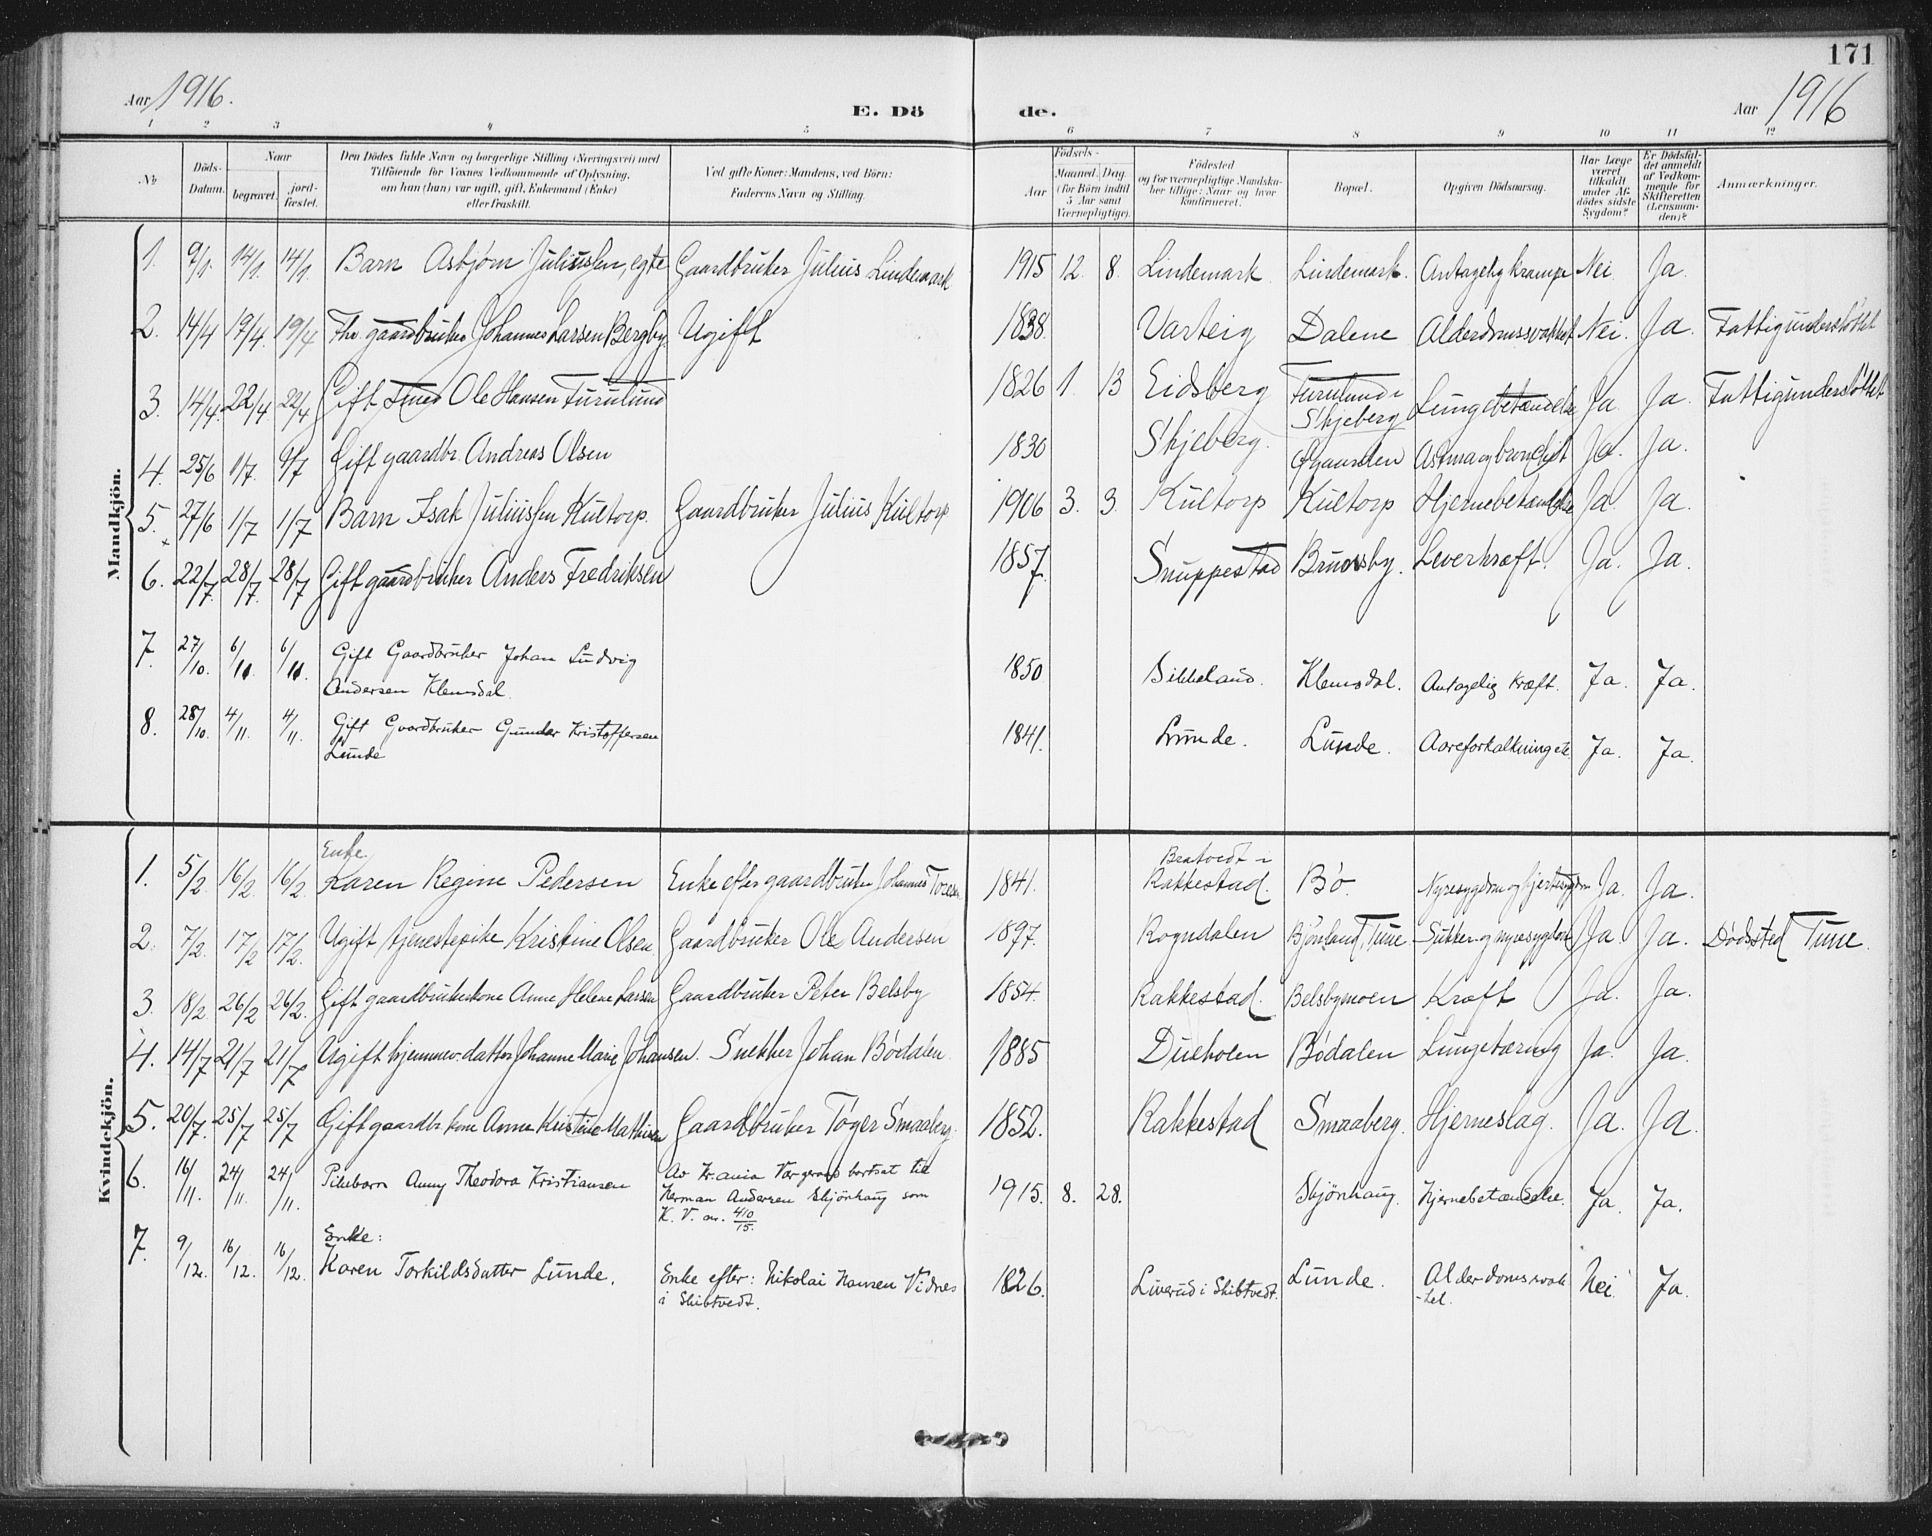 171
Aar 1916.
E. Dö de.
Aar 1916
1 2 3 4 5 6 7 8 9 10 11 12
No
Döds-Datum.
Naar begravet. jordfæstet.
Den Dödes fulde Navn og borgerlige Stilling (Næringsvei) med Tilföiende for Voxnes Vedkommende af Oplysning, om han (hun) var ugift, gift, Enkemand (Enke) eller fraskilt.
Ved gifte Koner: Mandens, ved Börn: Faderens Navn og Stilling.
Födsels- Aar Maaned. Dag. (for Börn indtil 5 Aar samt Værnepligtige).
Födested og for værnepligtige Mandskaber tillige: Naar og hvor konfirmeret.
Bopæl.
Opgiven Dödsaarsag.
Har Læge været tilkaldt under Afdödes sidste Sygdom?
Er Dödsfaldet anmeldt af Vedkommende for Skifteretten (Lensmanden)?
Anmærkninger.
Mandkjön.
1. 9/1 14/1 14/1 Barn Asbjørn Juliussen, egte Gaardbruker Julius Lindemark 1915 12 8. Lindemark Lindemark. Antagelig krampe Nei Ja.
2. 14/4 19/4 19/4 Fhv. gaardbruker Johannes Larsen Bergby. Ugift 1838. Varteig Dalene Alderdomssvakhet Nei. Ja. Fattigunderstøttet
3. 14/4. 22/4 22/4 Gift Ole Hansen Furulund 1826 1. 13 Eidsberg Furulund i Skjeberg Lungebetændelse Ja Ja. Fattigunderstøttet
4. 25/6 1/7 Gift gaardbr. Andreas Olsen 1830 Skjeberg. Astma og bronchit Ja. Ja.
5. 27/6 1/7 1/7 Barn Isak Juliussen Kultorp. Gaardbruker Julius Kultorp 1906 3. 3. Kultorp Kultorp Hjernebetændelse Ja Ja.
6. 22/7 28/7 28/7 Gift gaardbruker Anders Fredriksen 1857 Snuppestad Leverkræft. Ja. Ja.
7. 27/10. 6/11. 6/11. Gift Gaardbruker Johan Ludvig Andersen Klemsdal. 1850 Bikkeland. Klemsdal. Antagelig kræft. Ja. Ja.
8. 28/10. 4/11. 4/11. Gift Gaardbruker Gunder Kristoffersen Lunde 1841. Lunde. Lunde. Aareforkalkning etc. Ja. Ja.
Kvindekjön.
1. 5/2 16/2 16/2. Enke Karen Regine Pedersen Enke efter gaardbruker Johannes 1841. i Rakkestad. Bö. Nyresygdom og hjertesygdom Ja. Ja.
2. 7/2 17/2 17/2. Ugift tjenestepike Kristine Olsen Gaardbruker Ole Andersen 1897. Rogndalen Bjönland, Tune Sukker- og nyresygdom Ja. Ja. Dødssted Tune.
3. 18/2 26/2 26/2. Gift gaardbrukerkone Anne Helene Larsen Gaardbruker Peter Belsby 1854. Rakkestad. Belsbymoen Kræft Ja. Ja.
4. 14/7 21/7 21/7 Ugift hjemmev. datter Johanne Marie Johansen. Snekker Johan Bødalen. 1885 Dueholen Bødalen Lungetæring Ja. Ja.
5. 20/7. 25/7 25/7 Gift gaardbr. kone Anne Kristine Mathisen Gaardbruker Töger Smaaberg. 1852. Rakkestad Smaaberg. Hjerneslag. Ja. Ja.
6. 16/11. 24/11. 24/11. Pikebarn Anny Theodora Kristiansen Av Kr.ania Værgeraad bortsat til Herman Andersen Skjönhaug som K. V. nr. 410/15. 1915. 8. 28. Skjönhaug. Hjernebetændelse. Ja. Ja.
7. 9/12. 16/12. 16/12. Enke: Karen Torkildsdatter Lunde. Enke efter: Nikolai Hansen Vidnes i Skibtvedt. 1826. Liverud i Skibtvedt. Lunde. Alderdomssvakhet. Nei Ja.